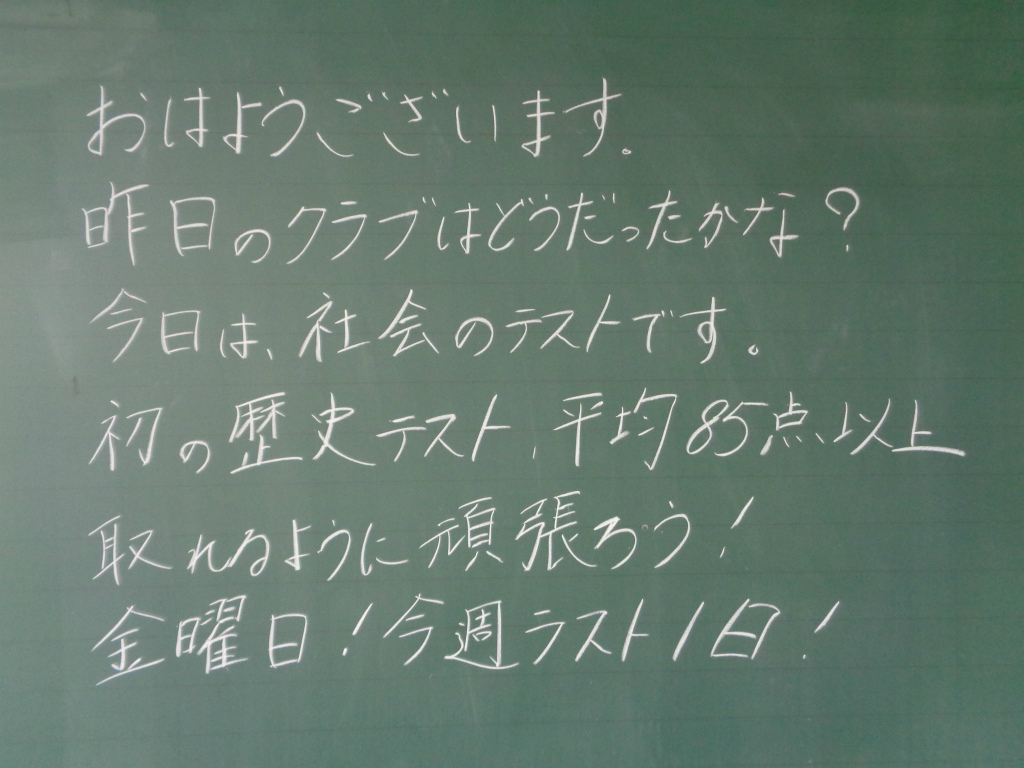 おはようございます。
昨日のクラブはどうだったかな？
今日は、社会のテストです。
初の歴史テスト、平均85点以上
取れるように頑張ろう！
金曜日！今週ラスト1日！